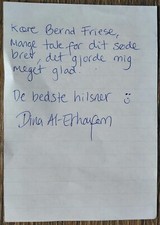 Kære Bernd Friese,
Mange tak for dit søde
brev, det gjorde mig
meget glad.
De bedste hilsner
Dina Al-Erhayem